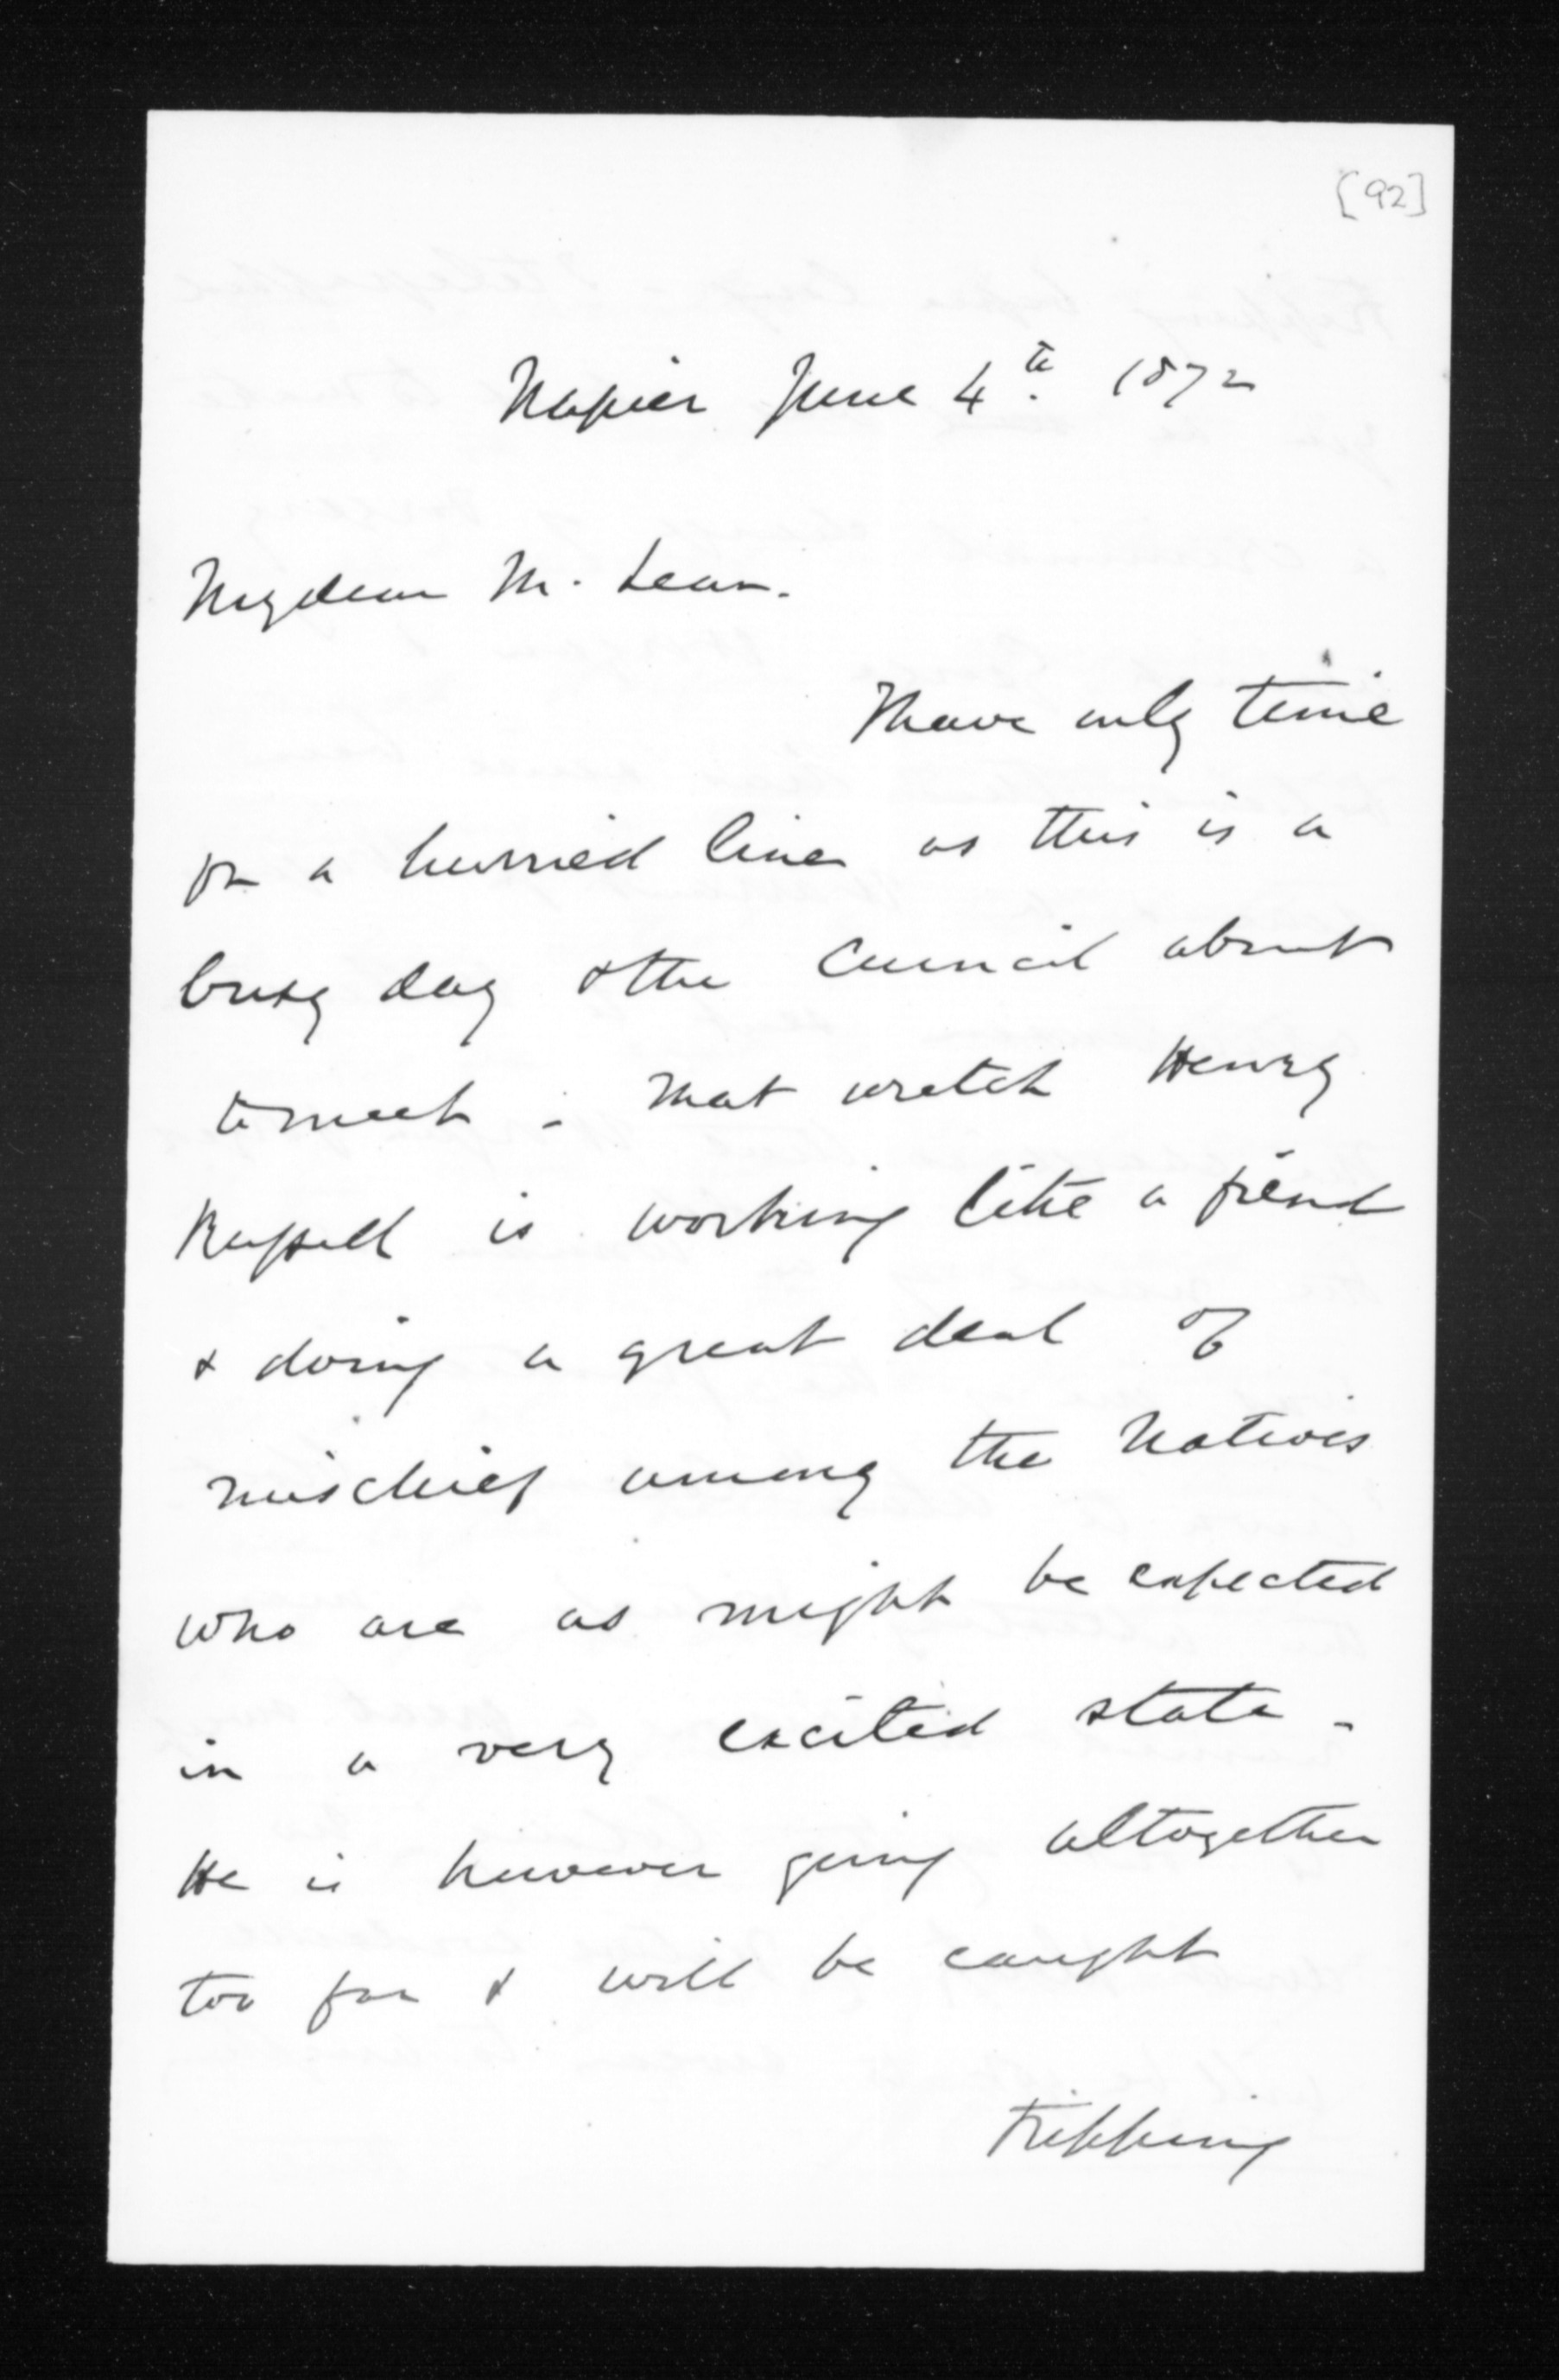 [92]
Napier June 4th. 1872
My dear M. Lean.
I have only time
for a hurried line as this is a
busy day & the Council about
to meet - That wretch Henry
Russell is working like a fiend
& doing a great deal of
mischief among the Natives
who are as might be expected
in a very excited state -
He is however going altogether
too far & will be caught
tripping